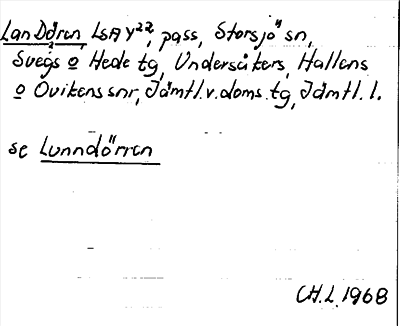 LanDörrn, LSA Y22, pass, Storsjö sn,
Svegs o Hede tg, Undersåkers, Hallens
o Ovikens snr, Jämtl.v.doms.tg, Jämtl. l.
se Lunndörren
CH.L. 1968